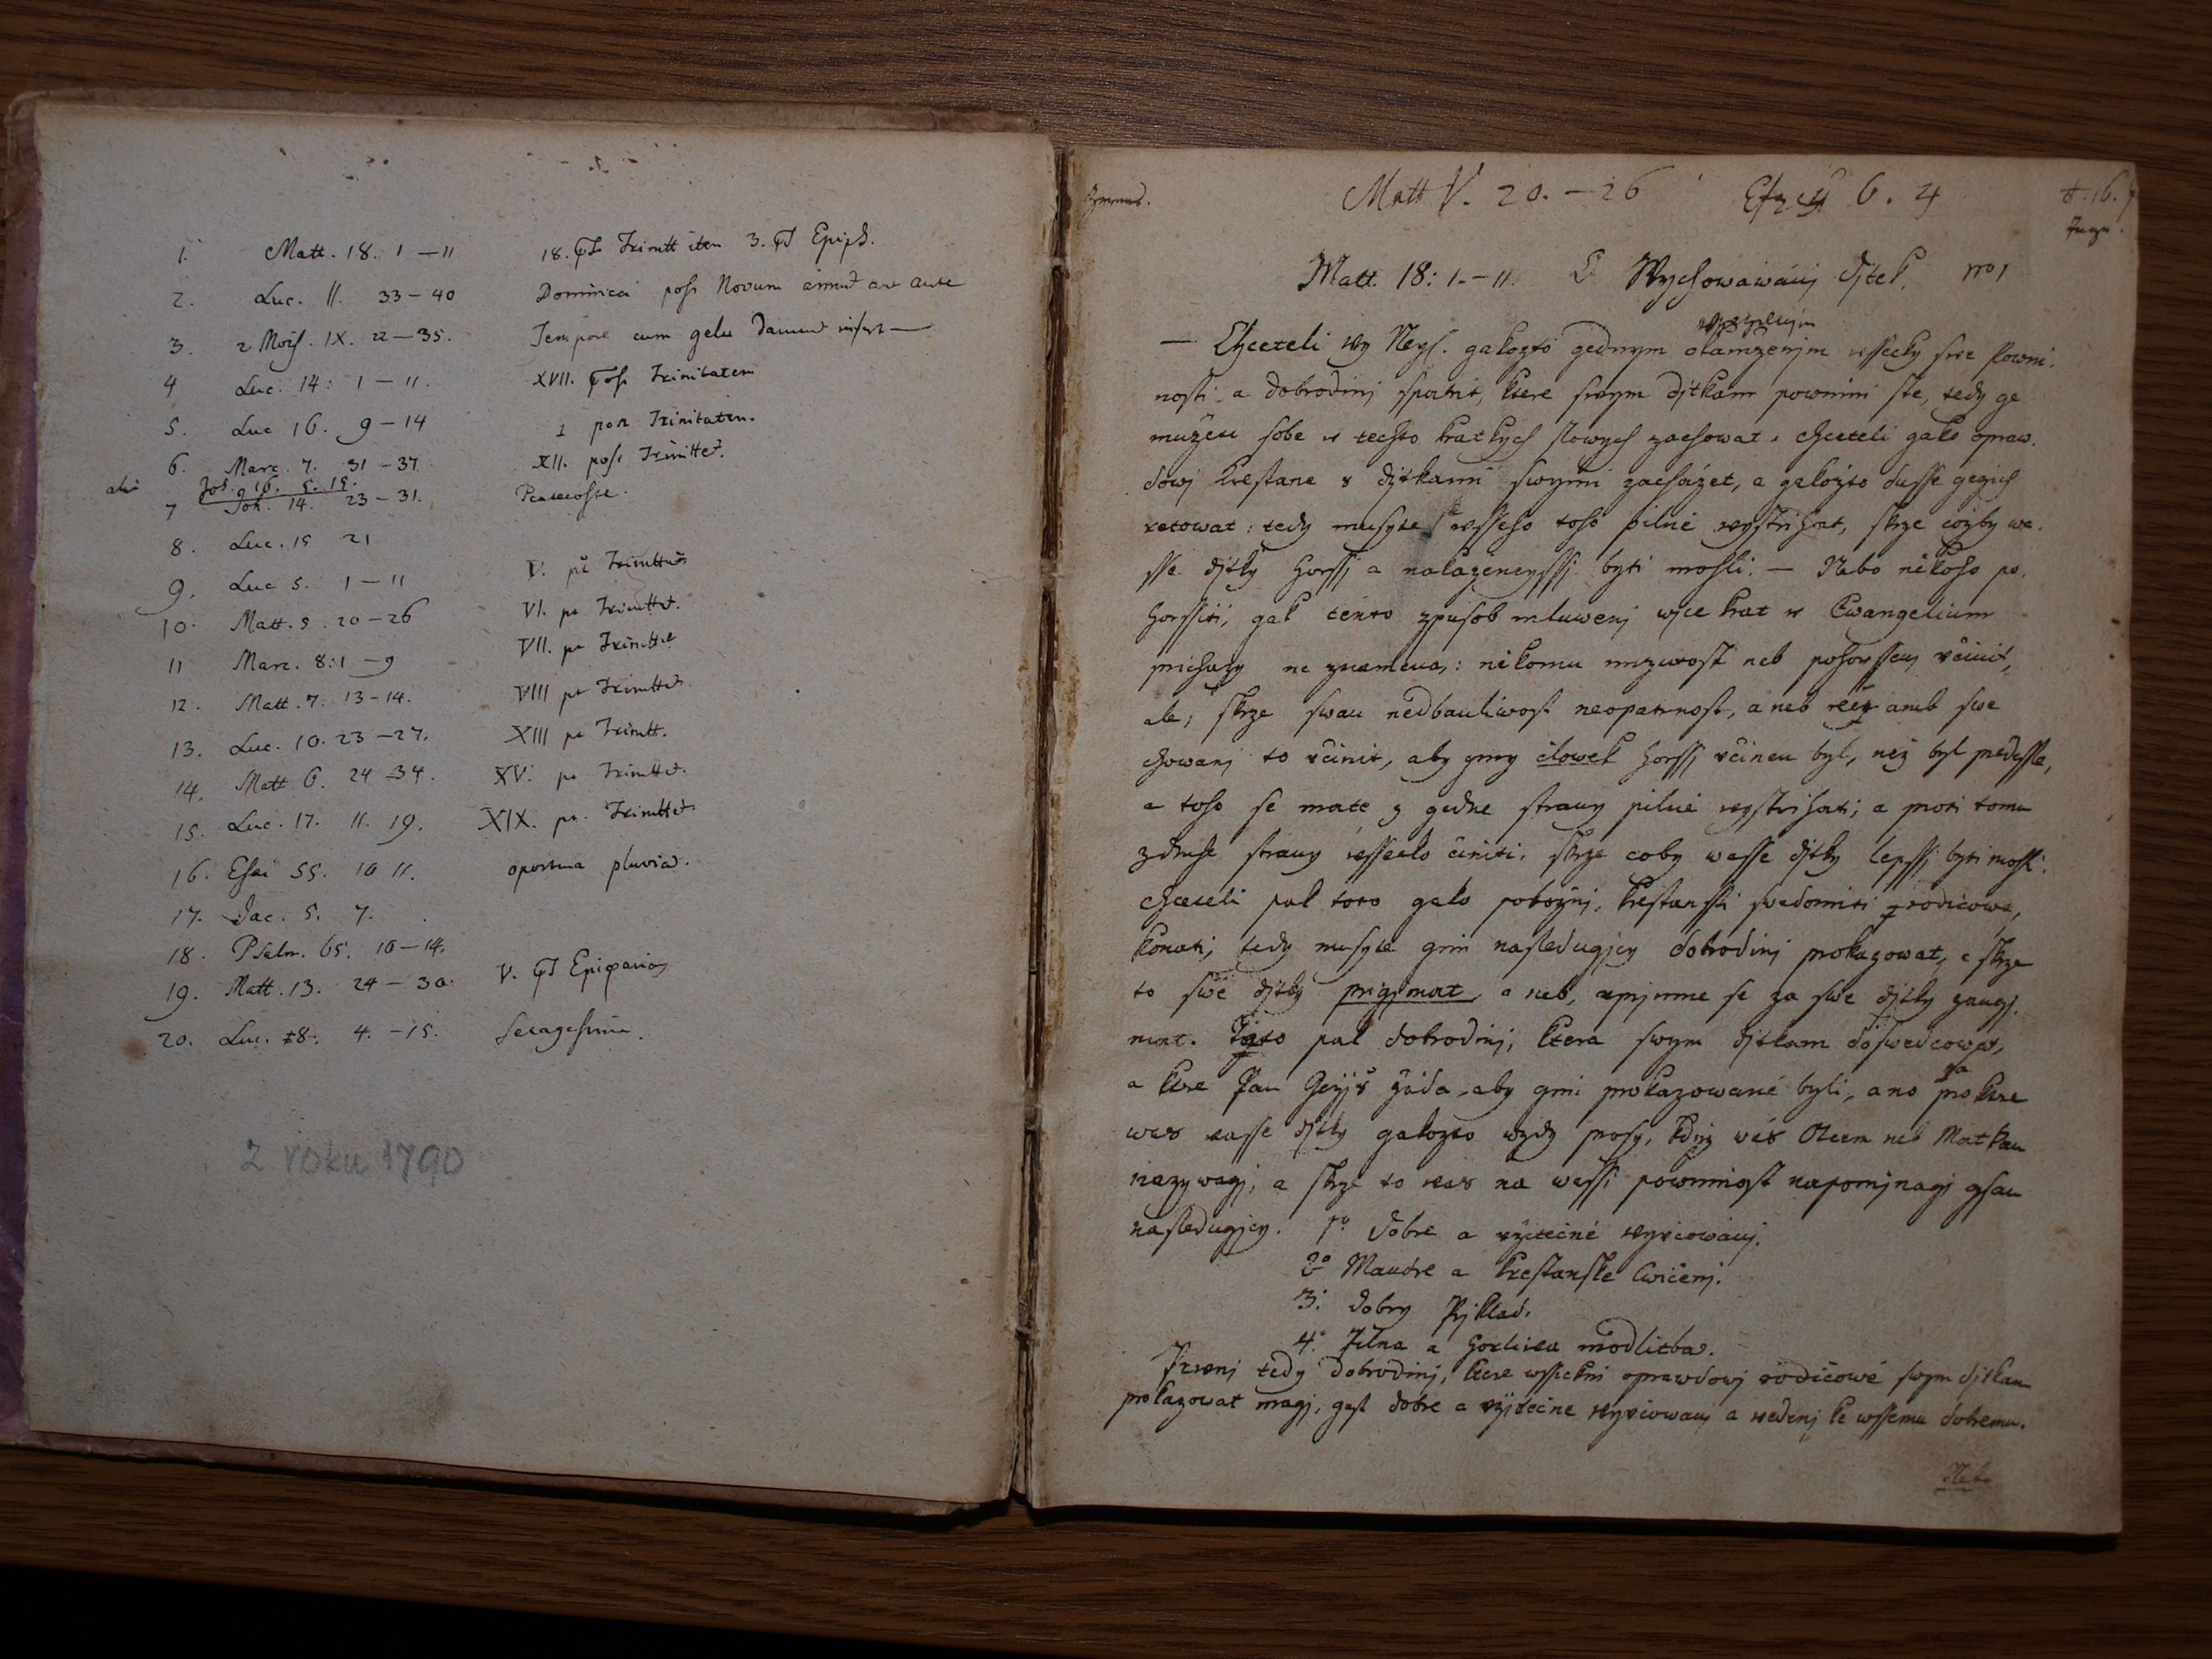 1. Matt. 18. 1 – 11 18. post Trinitt item 3. post Epiph.
2. Luc. 11. 33 – 40 Dominica post Novum annum aut ante
3. 2 Mois. IX. 22 – 35. Tempore cum gelu damnum
4 Luc. 14: 1 – 11. XVII. post Trinitatem
5. Luc 16. 9 – 14 1 post Trinitatem.
6. Marc. 7. 31 – 37 XII. post Trinittet.
Joh. 16. 5. 15.
7 Joh. 14. 23 – 31. Pentecoste.
8. Luc. 15 21
9. Luc 5. 1 – 11 V. pt Trinittet
10. Matt. 5. 20 – 26 VI. pt Trinittet.
11 Marc. 8:1 – 9 VII. pt Trinittet
12. Matt. 7. 13 – 14. VIII pt Trinittet
13. Luc. 10. 23 – 27. XIII pt Trinitt.
14. Matt 6. 24 – 34. XV. pt Trinittet.
15. Luc. 17. 11. 19. XIX. pt. Trinittet
16. Esai 55. 10 11. oportuna pluvia.
17. Jac. 5. 7.
18. Psalm. 65. 10 – 14.
19. Matt. 13. 24 – 30. V. post Epiphania
20. Luc. 8. 4. – 15. Sexagesima.
Z roku 1790
Matt V. 20. – 26 6. 4
Matt. 18: 1. – 11. O Wychowáwánj djtek. no 1
– Chceteli wy Neyl. gakožto gednym okamženjm wssecky swe powin-
nosti a dobrodinj spatrit, ktere swym djtkam powinni ste, tedy ge
mužete sobe w techto kratkych slowych zachowat. chceteli gako opraw-
dowj krestane s djtkami swymi zacházet, a gakožto dusse gegich
retowat: tedy musyte se wsseho toho pilně wystrihat, skrze cožby wa-
sse djtky horssj a nakaženeyssj byti mohli. – Nebo někoho po-
horssiti, gak tento zpusob mluwenj wjce krat w Ewangelium
prichazy ne znamena: někomu mrzutost neb pohorssenj včinit,
ale, skrze swau nedbauliwost neopatrnost, aneb řeč aneb swe
chowanj to včinit, aby giny člowek horssj včinen byl, než byl predesle,
a toho se mate z gedne strany pilně wystrihati; a proti tomu
z druhe strany wssecko činiti, skrze coby wasse djtky lepssj byti mohli.
chceteli pak toto gako pobožnj, krestanssti swedomiti rodicowe,
konati, tedy musyte gim nasledugjcy dobrodinj prokazowat, a skrze
to swé djtky prigjmat, a neb, vprjmne se za swe djtky zaugj-
mat. Tato pak dobrodinj, ktera swym djtkam doswedcowat,
a ktere Pan Gežjš žáda, aby gim prokazowané byli, ano pro ktere
was wasse djtky gakožto wzdy prosy, když wás Otcem neb Matkau
nazywagj, a skrze to was na wassi powinnost napomjnagj gsau
nasledugjcy. 1º dobre a vžitečné wyvčowánj.
2º Maudre a krestanske Cwičenj.
3. dobry Prjklad.
4º Pilna a horliwa modlitba.
Prwnj tedy dobrodinj, ktere wssickni oprawdowj rodičowé swym djtkam
prokazowat magj, gest dobre a vžitečne wyvčowanj a wedenj ke wssemu dobremu.
Nebo